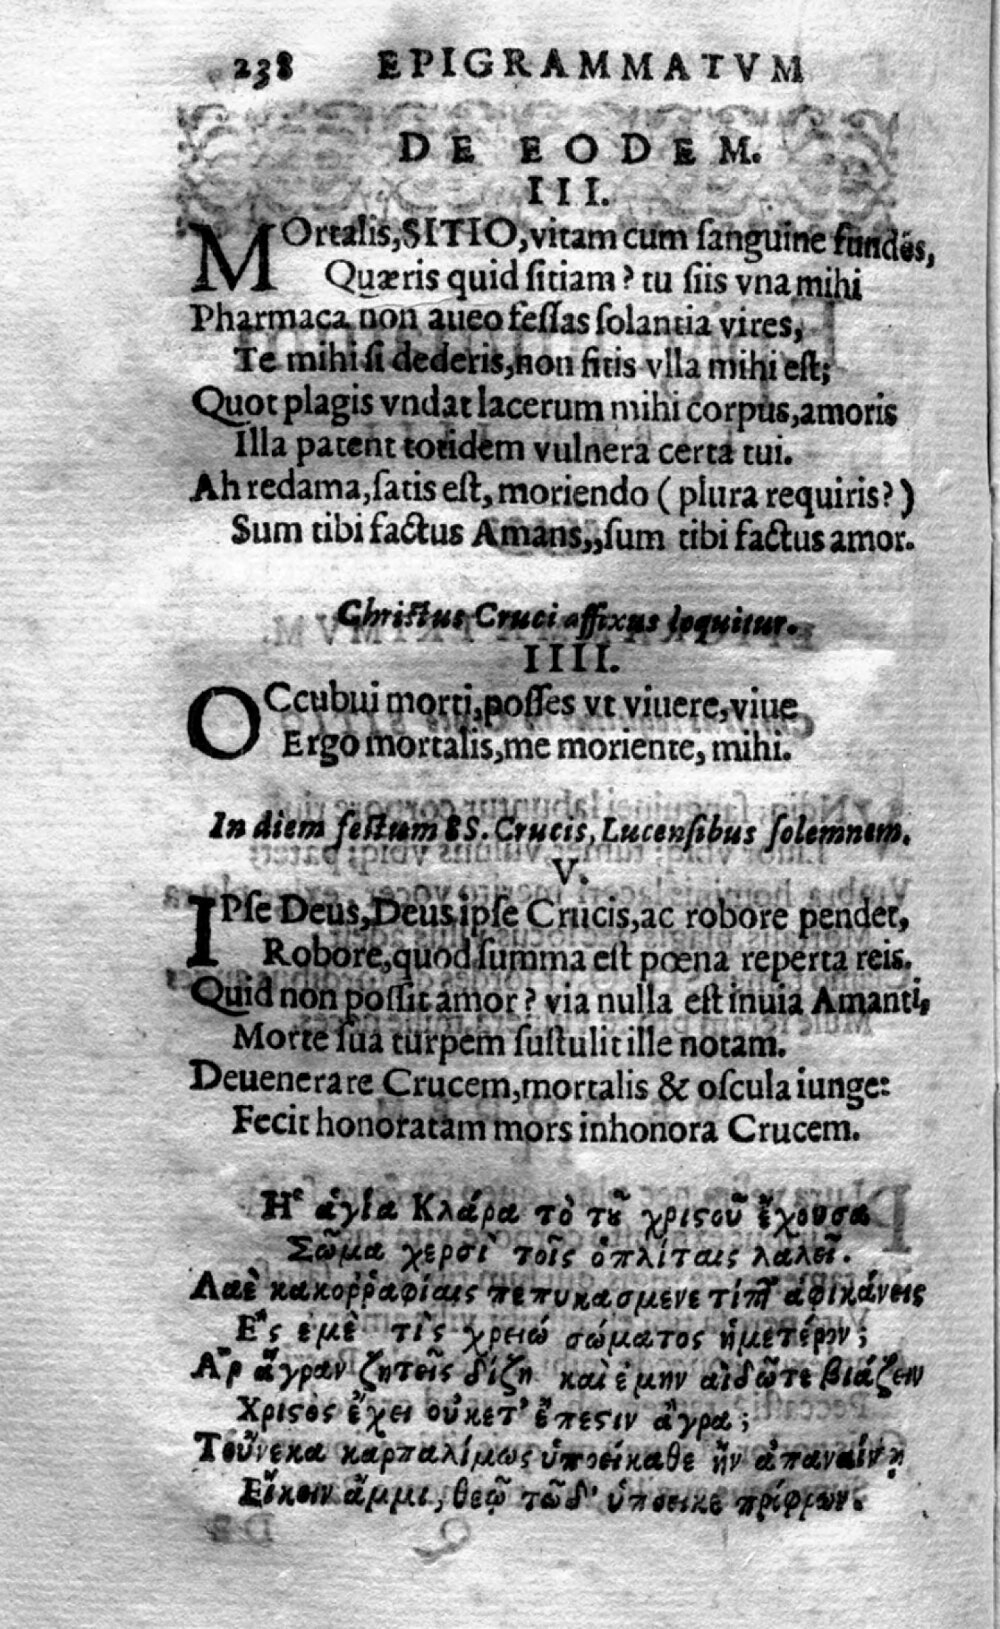 238 EPIGRAMMATVM
DE EODEM.
III.
MOrtalis, SITIO, vitam cum sanguine fundẽs,
Quæris quid sitiam? tu siis vna mihi
Pharmaca non aueo fessas solantia vires,
Te mihi si dederis, non sitis vlla mihi est;
Quot plagis vndat lacerum mihi corpus, amoris
Illa patent totidem vulnera certa tui.
Ah redama, satis est, moriendo ( plura requiris? )
Sum tibi factus Amans,, sum tibi factus amor.
Christus Cruci affixus loquitur.
IIII.
OCcubui morti, posses vt viuere, viue
Ergo mortalis, me moriente, mihi.
In diem festum SS. Crucis, Lucensibus solemnem.
V.
IPse Deus, Deus ipse Crucis, ac robore pendet,
Robore, quod summa est pœna reperta reis.
Quid non possit amor? via nulla est inuia Amanti,
Morte sua turpem sustulit ille notam.
Deuenerare Crucem, mortalis & oscula iunge:
Fecit honoratam mors inhonora Crucem.
Ἡ ἁγία Κλάρα τὸ τοῦ χριστοῦ ἔχουσα
Σῶμα χερσὶ τοῖς ὁπλίταις λαλεῖ.
Λαὲ κακορῥαφίαις πεπυκασμενε τίπτ' αφικάνεις
Εἰς ἐμὲ τὶς χρειώ σώματος ἡμετέρου;
Ἀρ ἄγραν ζητεῖς δίζῃ καὶ ἐμὴν αἰδῶτε βιάζειν
Χριστὸς ἔχει οὐκετ' ἔπεστιν ἄγρα;
Τοὔνεκα καρπαλίμως ὑποείκαθε ἢν ἀπαναίνῃ
Εἴκειν ἄμμι, θεῷ τῶδ' ὑπόεικε